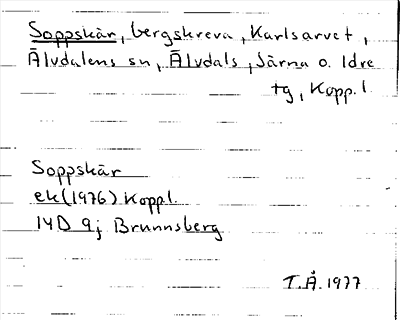 Soppskär, bergskreva, Karlsarvet,
Älvdalens sn, Älvdals, Särna o. Idre
tg, Kopp. l.
Soppskär
ek (1976) Koppl.
14D 9j Brunnsberg
T.Å. 1977